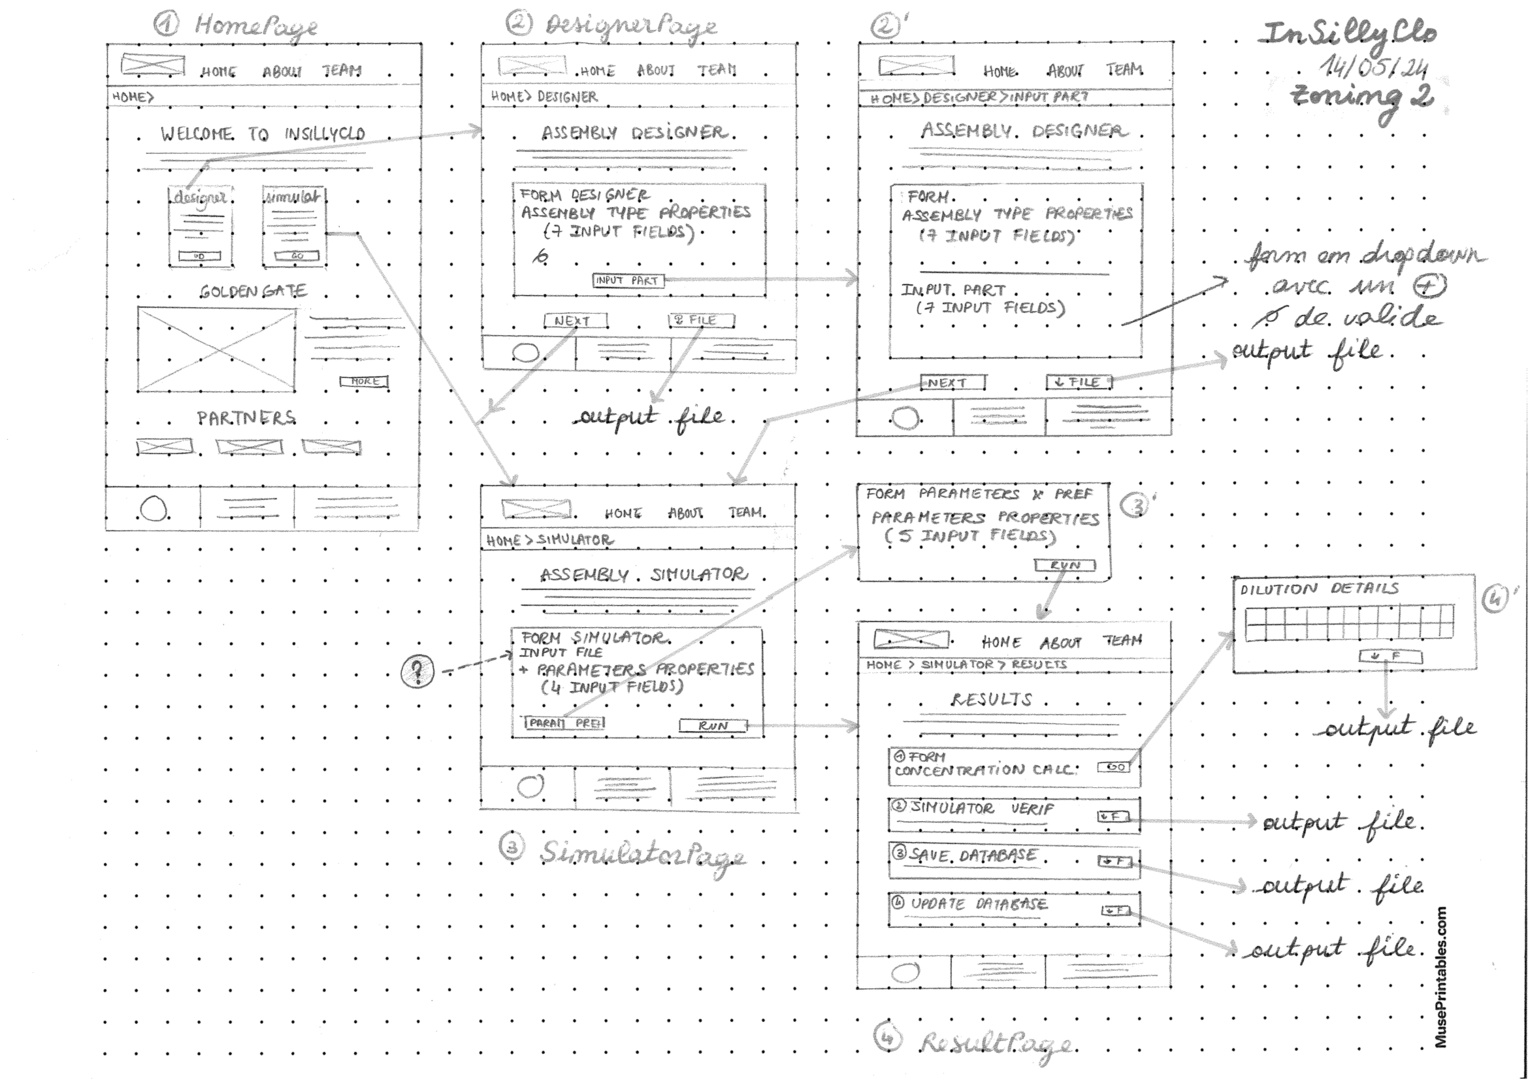 ① HomePage
HOME ABOUT TEAM
HOME>
WELCOME TO INSILLYCLO
designer
GO
simulat
GO
GOLDEN GATE
MORE
PARTNERS
② DesignerPage
HOME ABOUT TEAM
HOME> DESIGNER
ASSEMBLY DESIGNER
FORM DESIGNER
ASSEMBLY TYPE PROPERTIES
(7 INPUT FIELDS)
INPUT PART
NEXT
FILE
output file
②'
HOME ABOUT TEAM
HOME> DESIGNER > INPUT PART
ASSEMBLY DESIGNER
FORM
ASSEMBLY TYPE PROPERTIES
(7 INPUT FIELDS)
INPUT PART
(7 INPUT FIELDS)
NEXT
↓ FILE
InSillyClo
14/05/24
Zoning 2
form en dropdown
avec un ⊕
de valide
output file
HOME ABOUT TEAM
HOME > SIMULATOR
ASSEMBLY SIMULATOR
FORM SIMULATOR
INPUT FILE
+ PARAMETERS PROPERTIES
(4 INPUT FIELDS)
PARAM PREF
RUN
?
③ SimulatorPage
FORM PARAMETERS x PREF
PARAMETERS PROPERTIES
(5 INPUT FIELDS)
RUN
③'
HOME ABOUT TEAM
HOME > SIMULATOR > RESULTS
RESULTS
① FORM
CONCENTRATION CALC.
GO
② SIMULATOR VERIF
↓ F
output file
③ SAVE DATABASE
↓ F
output file
④ UPDATE DATABASE
↓ F
output file
④ ResultPage
DILUTION DETAILS
↓ F
④'
output file
MusePrintables.com